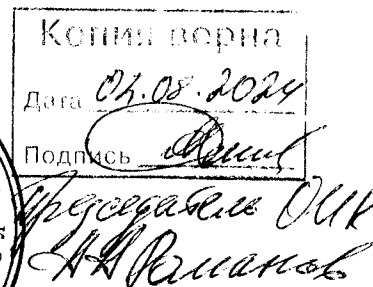 Копия верна
Дата 04.08.2024
Подпись
Председатель ОИК
А А Романов